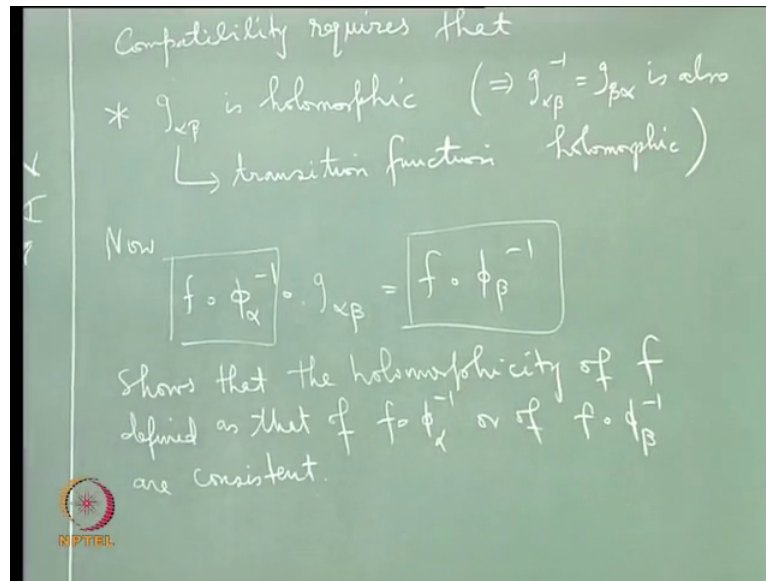 Compatibility requires that
* g_αβ is holomorphic (⇒ g_αβ^-1 = g_βα is also
↳ transition function holomorphic)
Now
f ∘ φ_α^-1 ∘ g_αβ = f ∘ φ_β^-1
Shows that the holomorphicity of f
defined as that of f ∘ φ_α^-1 or of f ∘ φ_β^-1
are consistent.
NPTEL